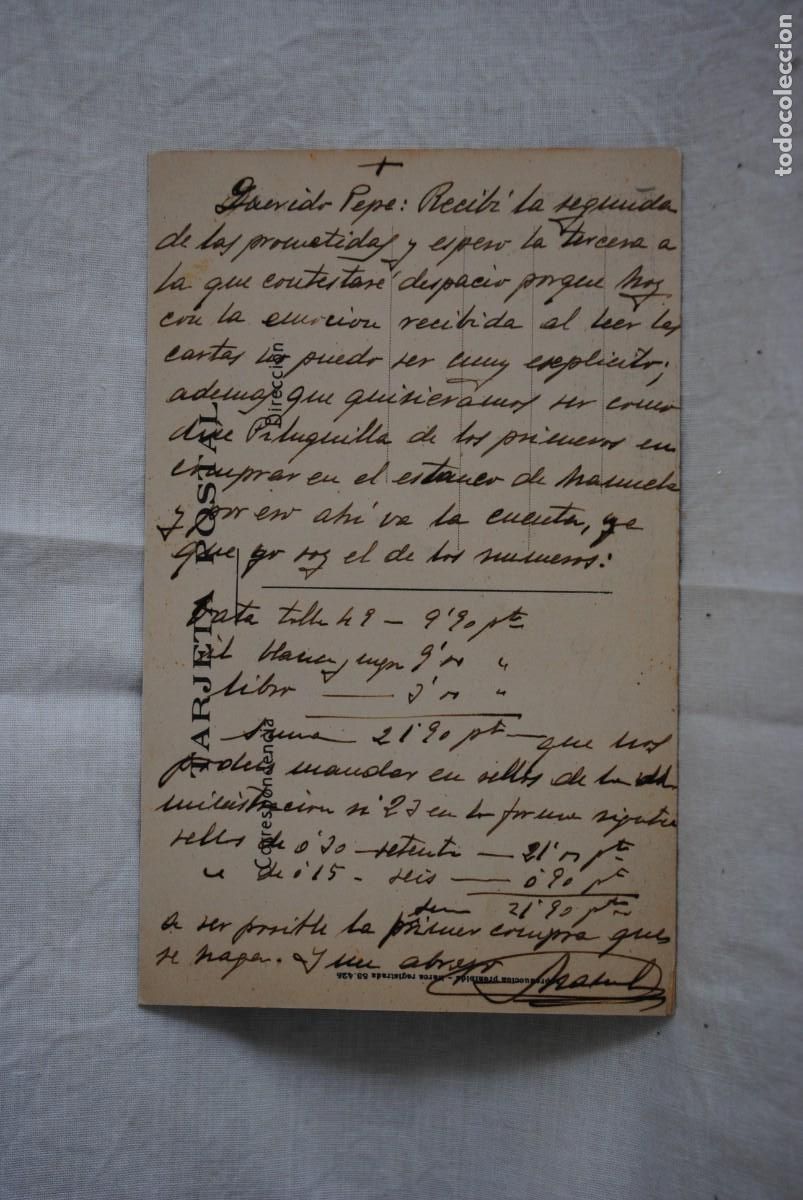 +
Querido Pepe: Recibí la segunda
de las prometidas y espero la tercera a
la que contestaré despacio porque hoy
con la emocion recibida al leer las
cartas no puedo ser muy esplicito;
ademas que quisieramos ser como
dice Piluquilla de los primeros en
comprar en el estanco de Manuela
y por eso ahí va la cuenta, ya
que yo soy el de los numeros:
Bata talla 49 — 9'90 pts
blanca y negra 9'00 "
libro — 3'00 "
Suma 21'90 pts — que nos
podeis mandar en sellos de la Ad
ministracion nº 23 en la forma siguiente
sellos de 0'30 — setenta — 21'00 pts
" de 0'15 - seis — 0'90 pts
suma 21'90 pts
a ser posible la primer compra que
se haga. Y un abrazo Manuel
TARJETA POSTAL
Dirección
Correspondencia
Reproduccion prohibida - Marca registrada 63.426
todocoleccion